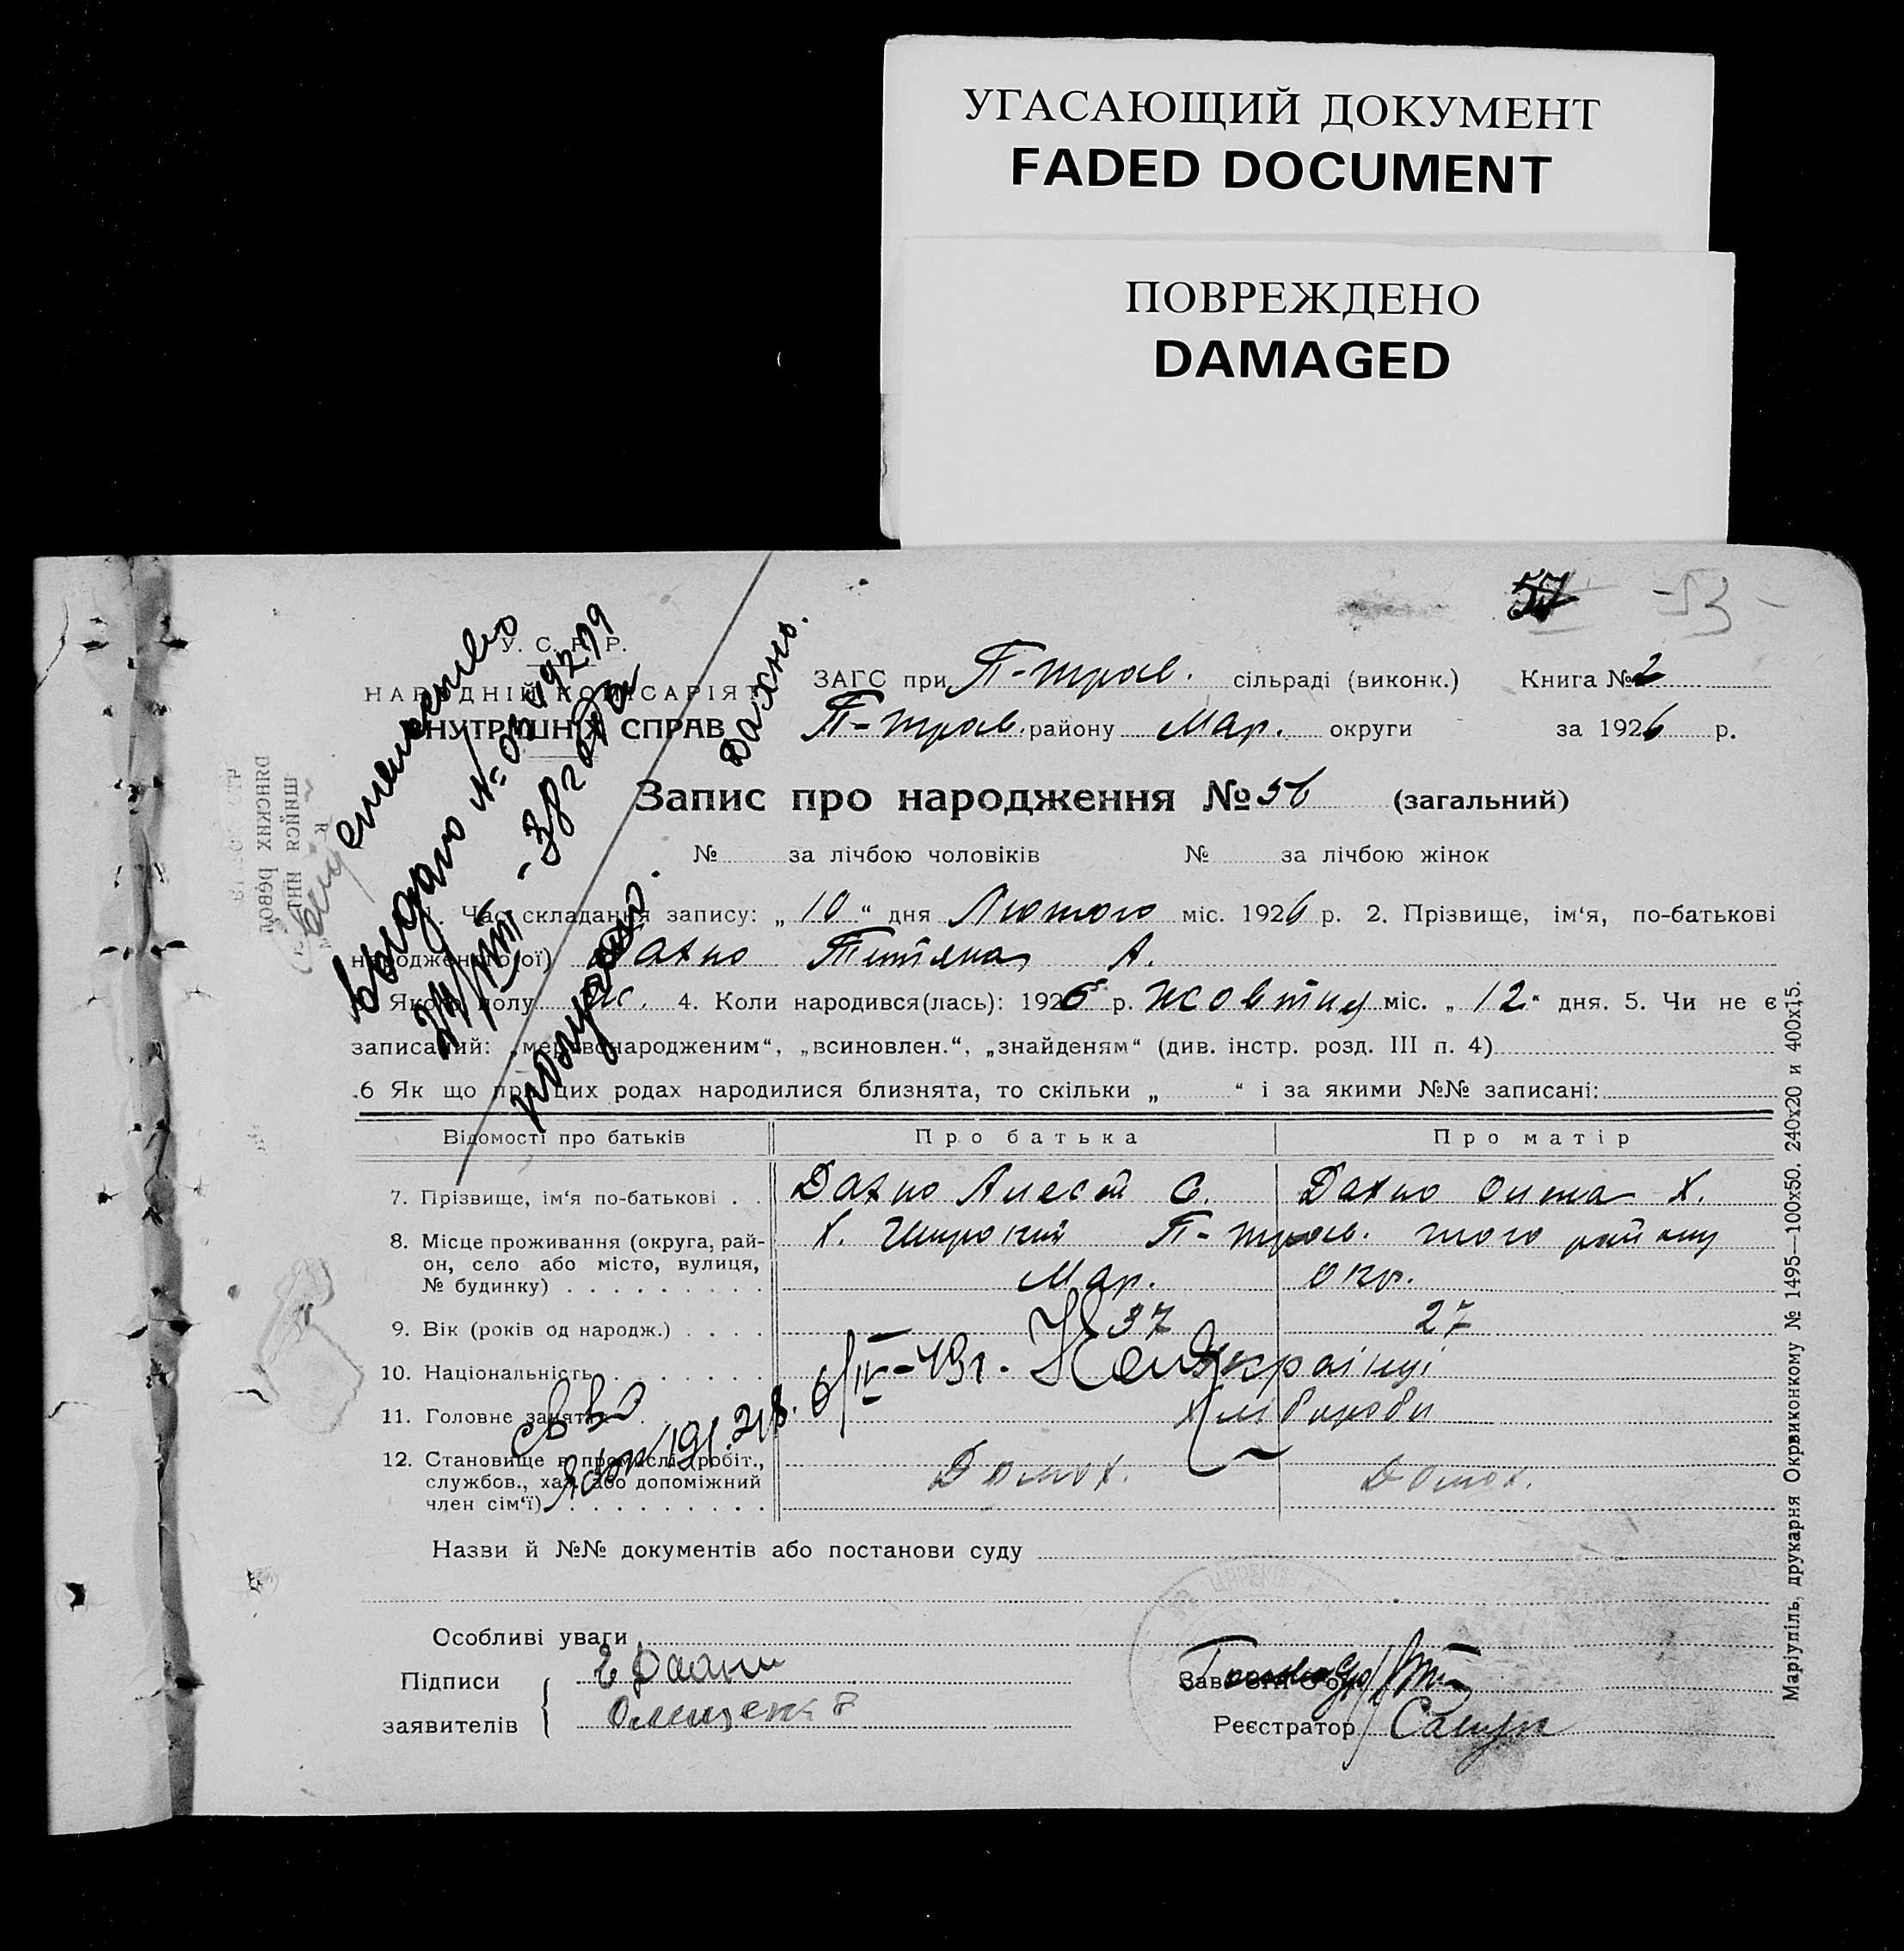 УГАСАЮЩИЙ ДОКУМЕНТ
FADED DOCUMENT
ПОВРЕЖДЕНО
DAMAGED
57 - 53 -
У. С. Р. Р.
НАРОДНІЙ КОМІСАРІЯТ
ВНУТРІШНІХ СПРАВ
ЗАГС при П-трав. сільраді (виконк.) Книга № 2
П-трав. району Мар. округи за 1926 р.
Запис про народження № 56 (загальний)
№ за лічбою чоловіків № за лічбою жінок
1. Час складання запису: „ 10 “ дня Лютого міс. 1926 р. 2. Прізвище, ім‘я, по-батькові
народженого(ої) Дахно Титяна А.
3. Якого полу ж. 4. Коли народився(лась): 1925 р. жовтня міс. „ 12 “ дня. 5. Чи не є
записаний: „мертвонародженим“, „всиновлен.“, „знайденям“ (див. інстр. розд. III п. 4)
.6 Як що при цих родах народилися близнята, то скільки „ “ і за якими №№ записані:
Відомості про батьків Про батька Про матір
7. Прізвище, ім‘я по-батькові . . Дахно Алесій С. Дахно Олена Х.
8. Місце проживання (округа, рай-
он, село або місто, вулиця,
№ будинку) . . . . . . . . .
Х. Широкий П-трав. того району
Мар. окр.
9. Вік (років од народж.) . . . . 37 27
10. Національність . . . . . . . Українці
11. Головне заняття . . . Хлібороби
12. Становище в промислі (робіт.,
службов., хаз. або допоміжний
член сім‘ї) . . . . . . . . .
Домох. Домох.
Назви й №№ документів або постанови суду
Особливі уваги
Підписи
заявителів
Зав.
Реєстратор
Маріупіль, друкарня Окрвиконкому № 1495—100х50. 240х20 и 400х15.
Выдано
получено. Дахно.
6/IV-43г.